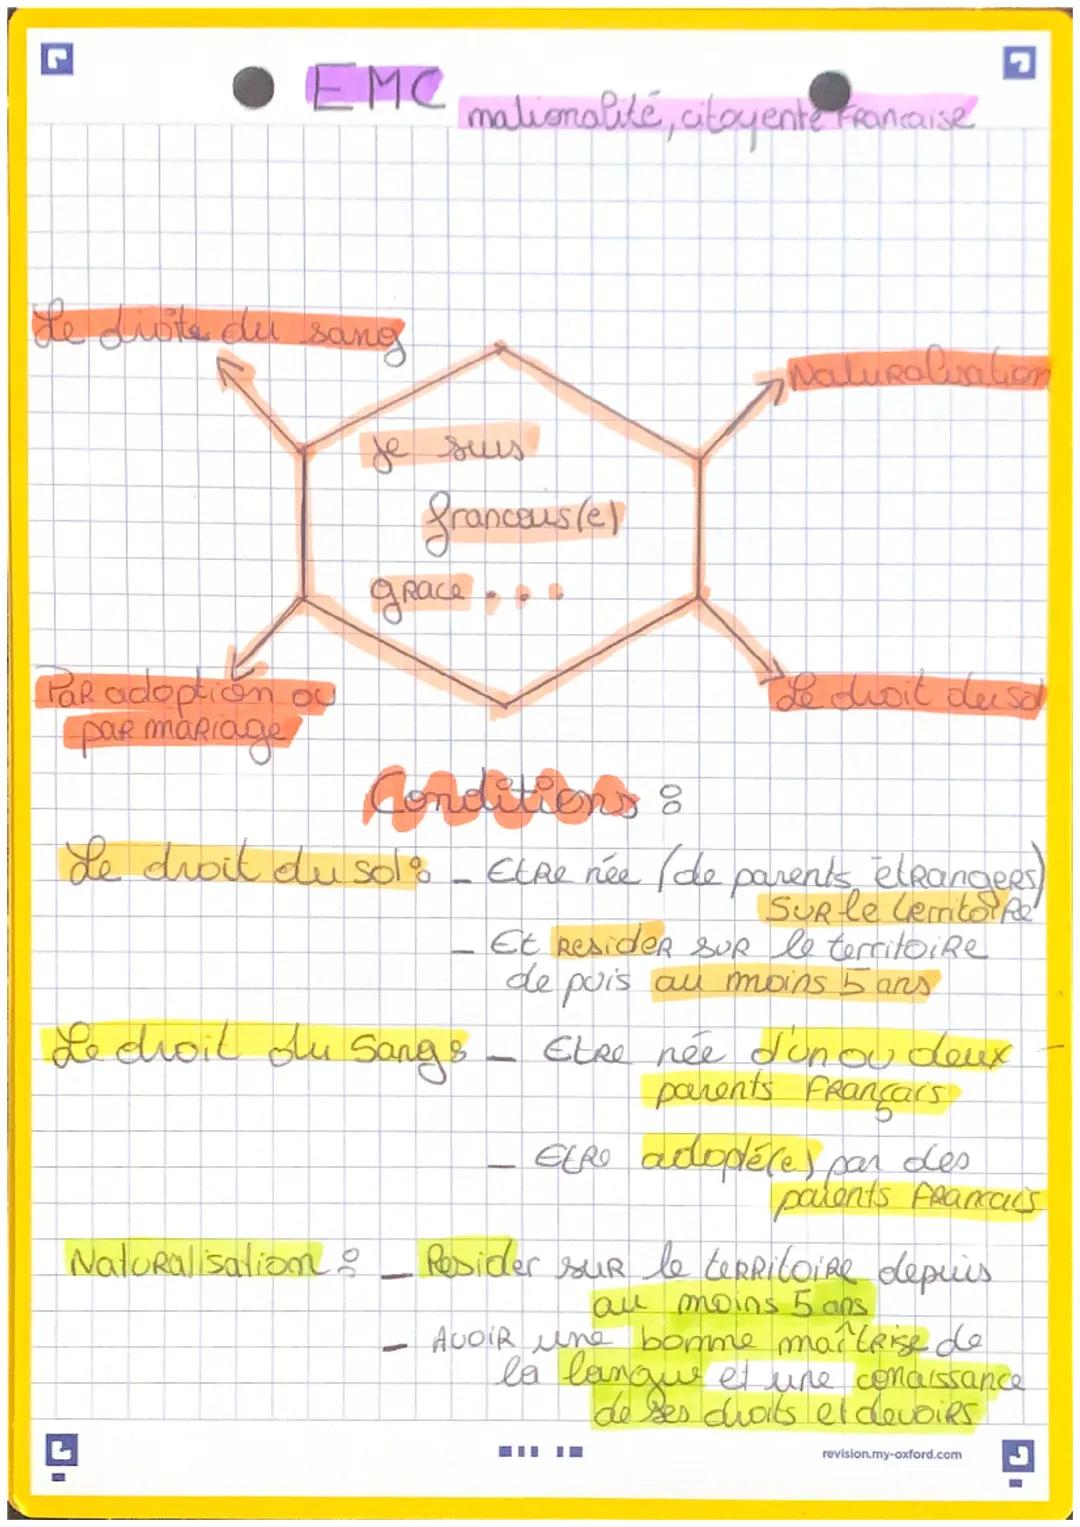 EMC
nationalité, citoyenté Francaise
Le droite du sang
Naturalisation
je suis
francais(e)
grace ...
Par adoption ou
par mariage
Le droit du sol
Conditions :
Le droit du sol : - Etre née (de parents étrangers)
Sur le territoire
- Et resider sur le territoire
depuis au moins 5 ans
Le droit du Sang : - Etre née d'un ou deux
parents Français
- Etre adopté(e) par des
parents Francais
Naturalisation : - Resider sur le territoire depuis
au moins 5 ans
- Avoir une bonne maîtrise de
la langue et une conaissance
de ses droits et devoirs
revision.my-oxford.com